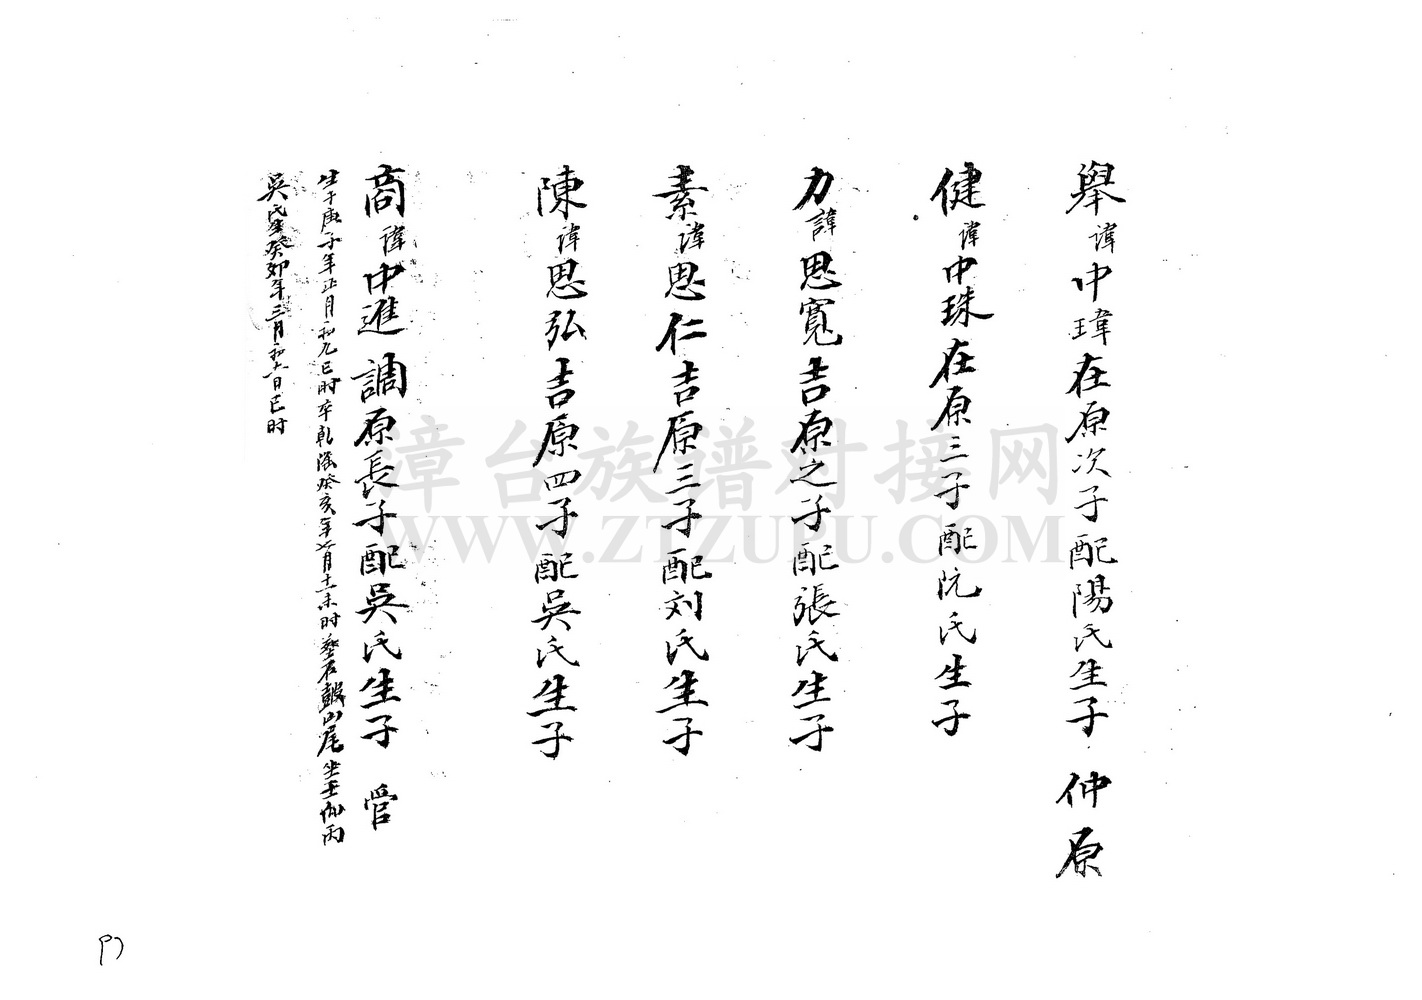 舉諱中瑋在原次子配陽氏生子 仲原
健諱中珠在原三子配阮氏生子
力諱思寬吉原之子配張氏生子
素諱思仁吉原三子配刘氏生子
陳諱思弘吉原四子配吳氏生子
商諱中進 調原長子配吳氏生子 管
生于庚子年正月初九巳时卒乾隆癸亥年 月十一未时葬石鼓山尾坐壬 丙
吳氏 癸卯年三月初 日巳时
漳台族谱对接网
WWW.ZTZUPU.COM
P7